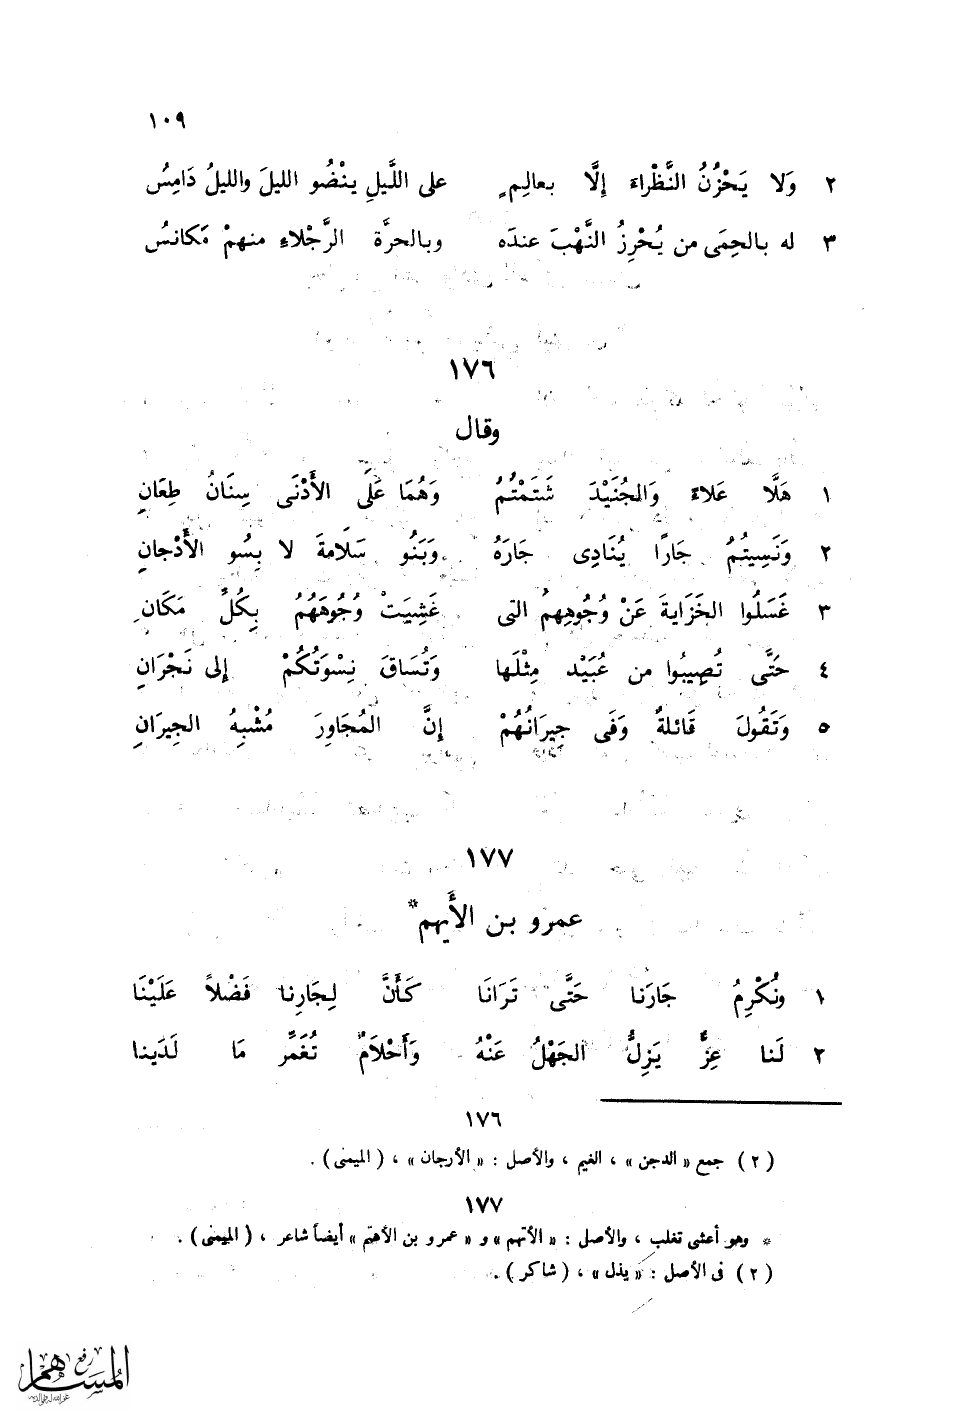 ١٠٩
٢ وَلا يَحْزُنُ النَّظْراءَ إلَّا بعالِمٍ على اللَّيلِ ينْضُو الليلَ والليلُ دَامِسُ
٣ له بالحِمَى من يُحْرِزُ النَّهْبَ عندَه وبالحرَّة الرَّجْلاءِ منهمْ مَكانسُ
١٧٦
وقال
١ هَلَّا عَلاءً وَالجُنَيْدَ شَتَمْتُمُ وَهُمَا عَلَى الأَدْنَى سِنَانُ طِعَانِ
٢ وَنَسِيتُمُ جَارًا يُنَادِى جَارَهُ وَبَنُو سَلَامةَ لا بِسُو الأَدْجانِ
٣ غَسَلُوا الخَزَايةَ عَنْ وُجُوهِهِمُ التى غَشِيَتْ وُجُوهَهُمُ بِكُلِّ مَكَانِ
٤ حَتَّى تُصِيبُوا من عُبَيْد مِثْلَها وَتُسَاقَ نِسْوَتُكُمْ إلى نَجْرَانِ
٥ وَتَقُولَ قَائلةٌ وَفَى جِيرَانُهُمْ إنَّ المُجَاوِرَ مُشْبِهُ الجِيرَانِ
١٧٧
عمرو بن الأَيهم*
١ ونُكْرِمُ جَارَنا حَتَّى تَرَانَا كَأَنَّ لِجَارِنا فَضْلاً عَلَيْنَا
٢ لَنا عِزٌّ يَزِلُّ الجَهْلُ عَنْهُ وَأَحْلَامٌ تُغَمِّر مَا لَدَينا
١٧٦
(٢) جمع « الدجن » ، الغيم ، والأصل : « الأرجان » ، ( الميمنى ) .
١٧٧
* وهو أعشى تغلب ، والأصل : « الأتهم » و « عمرو بن الأهتم » أيضاً شاعر ، ( الميمنى ) .
(٢) فى الأصل : « يذل » ، ( شاكر ) .
رفع
المساهم